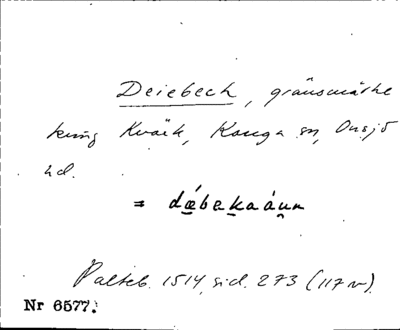 Deiebech, gränsmärke
kring Kväck, Konga sn, Onsjö
hd.
= dǽbekaáun
Palteb. 1514, sid. 273 (117 v).
Nr 6577.